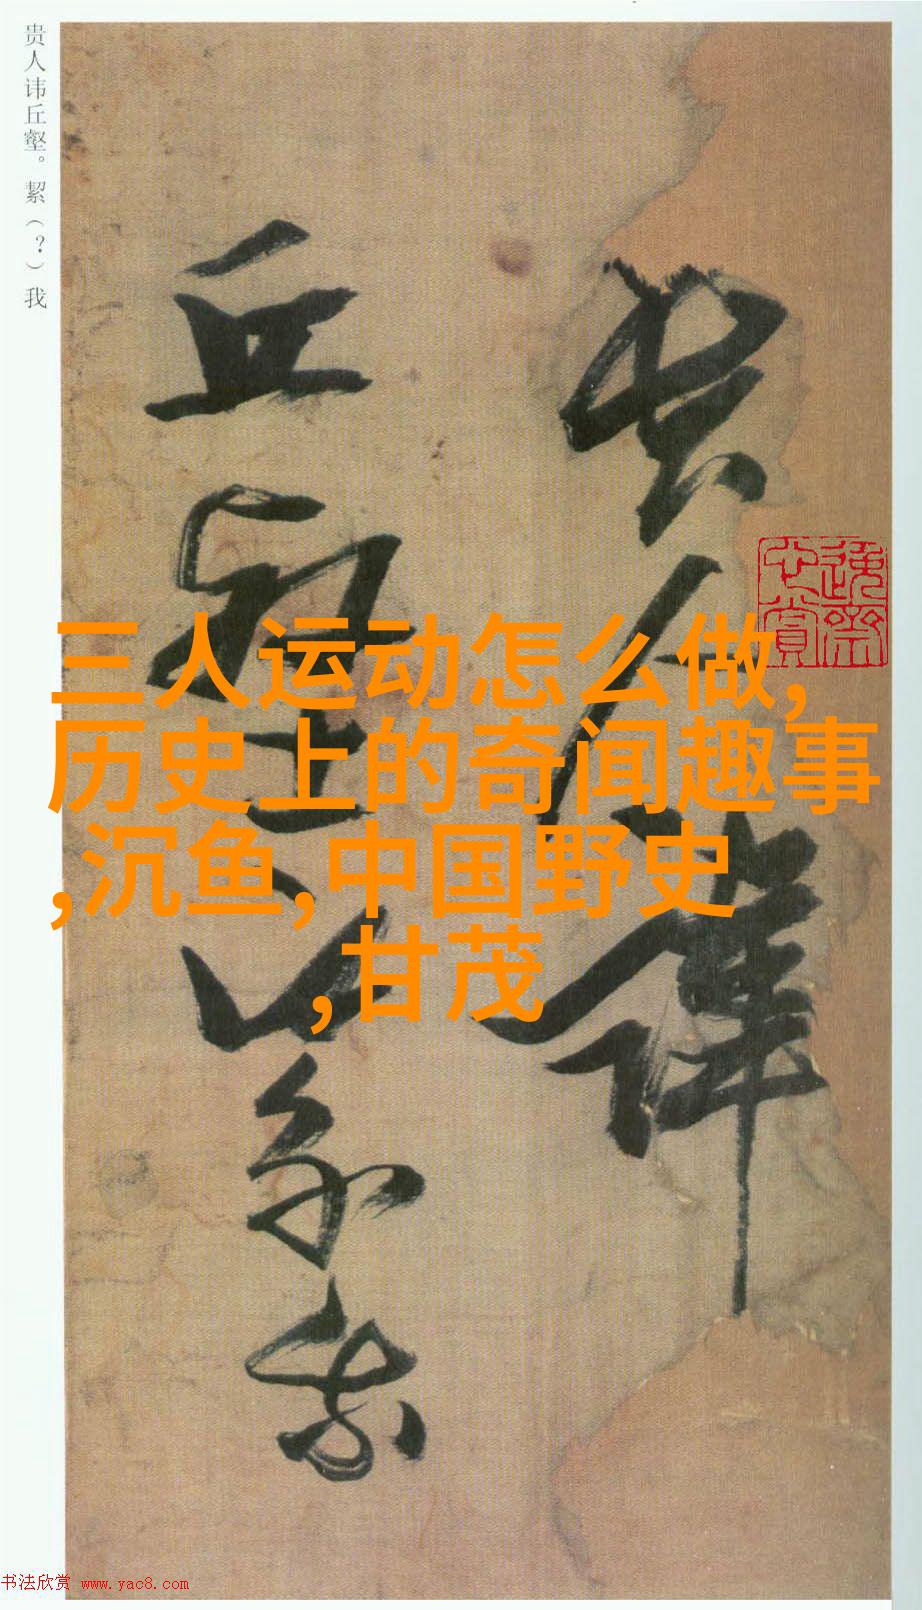 贵人讳丘壑。絜（？）我
贵人讳
丘壑以
絜我
三人运动怎么做,
历史上的奇闻趣事
,沉鱼,中国野史
,甘茂
书法欣赏 www.yac8.com